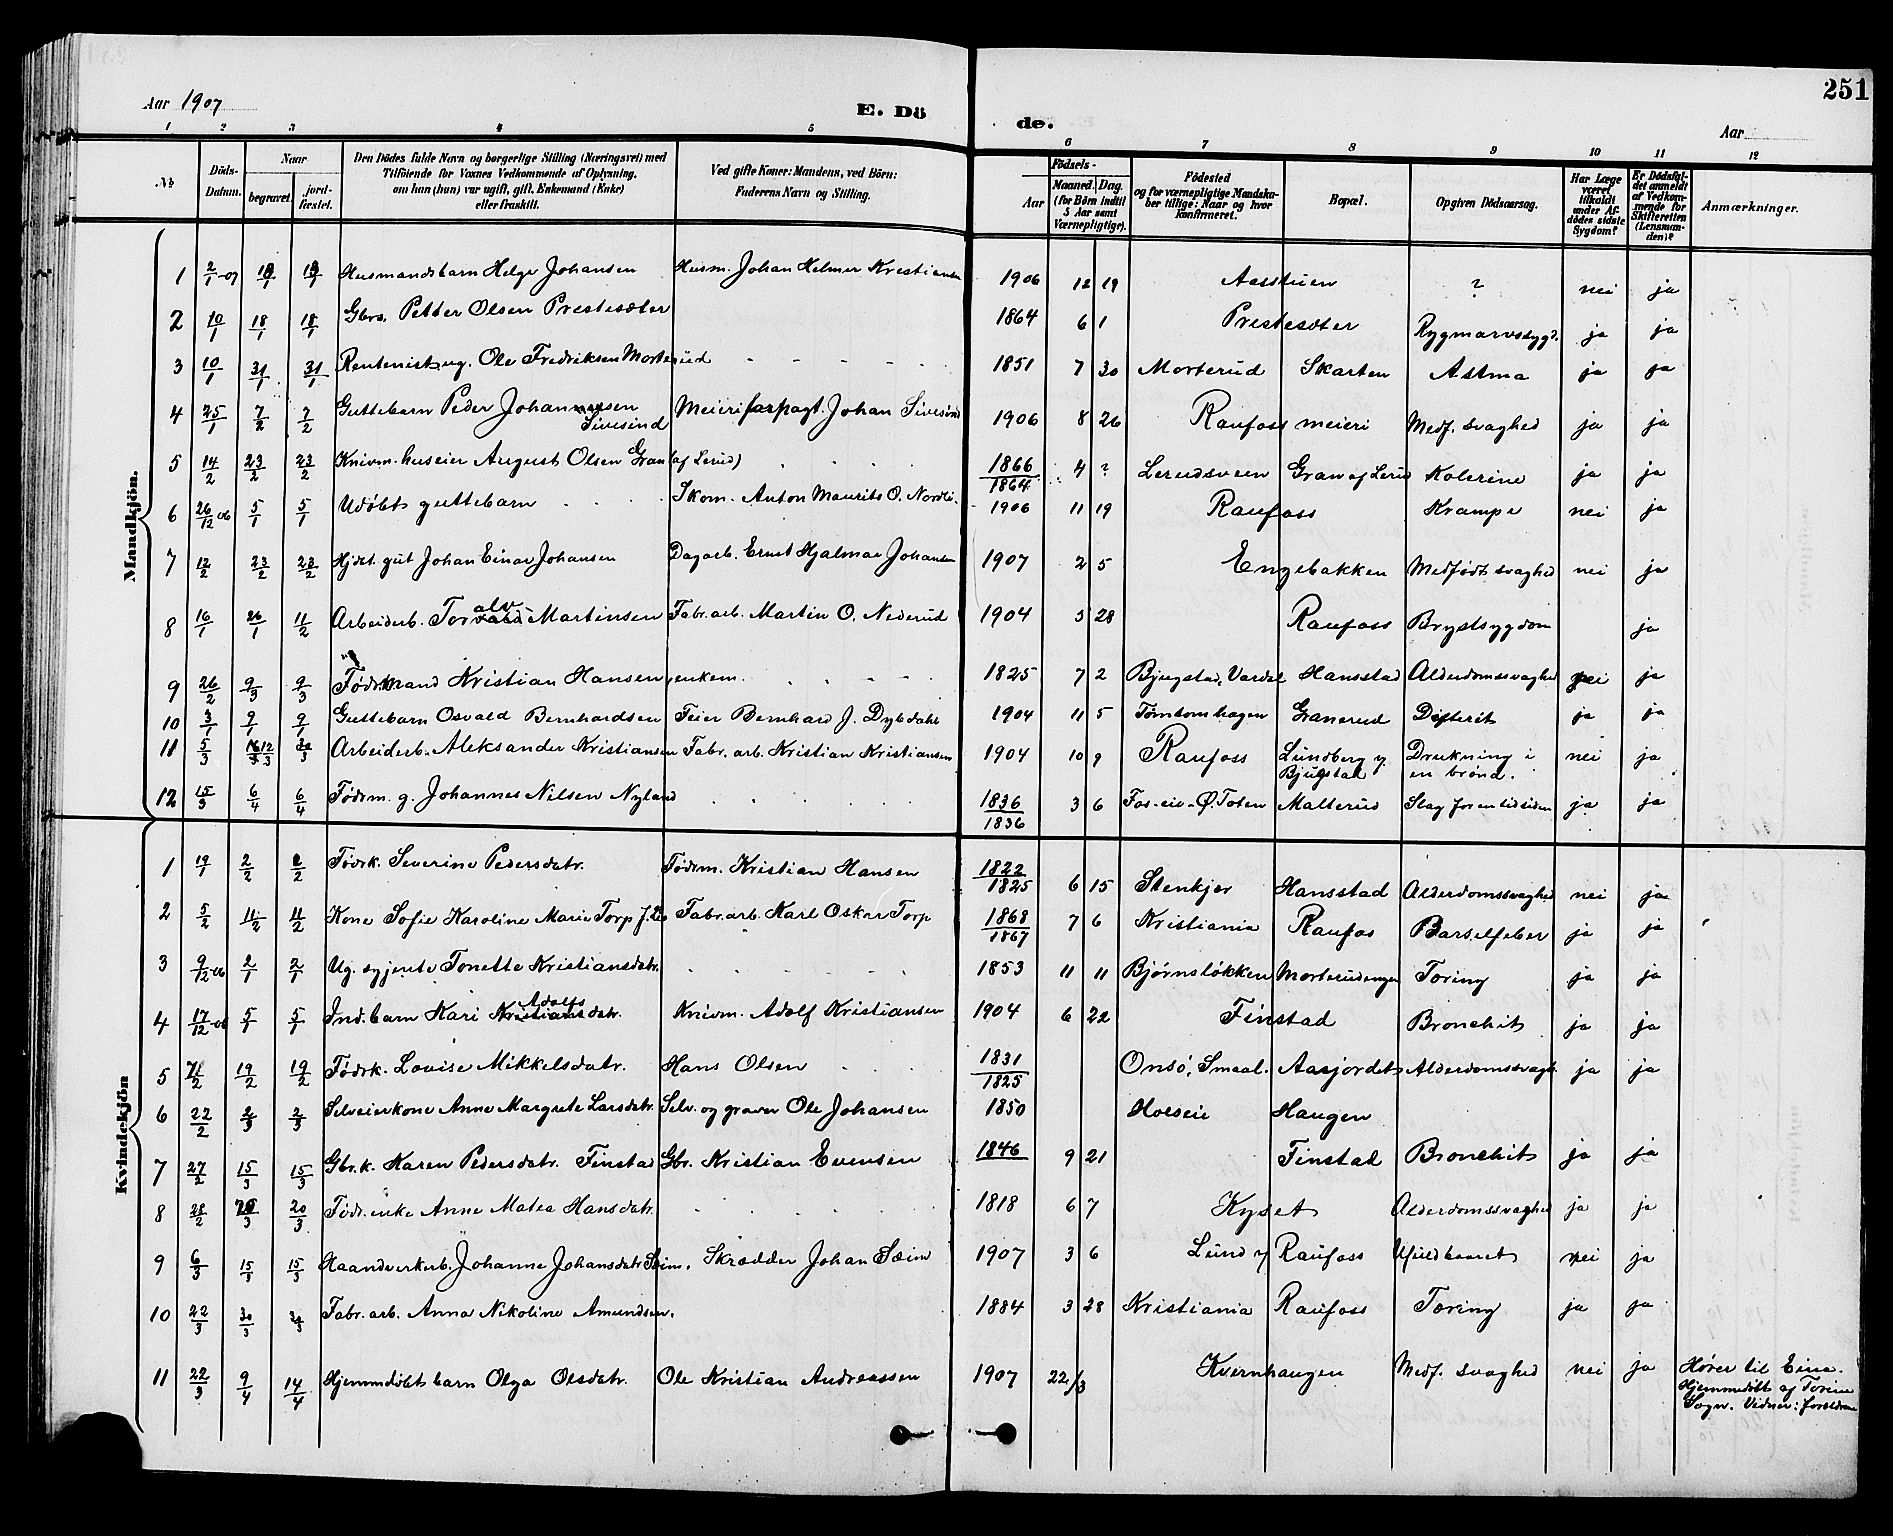 Aar 1907
E. Dö
de.
251
Aar
1 2 3 4 5 6 7 8 9 10 11 12
No
Döds-Datum.
Naar
begravet.
jord-fæstet.
Den Dödes fulde Navn og borgerlige Stilling (Næringsvei) med
Tilföiende for Voxnes Vedkommende af Oplysning,
om han (hun) var ugift, gift, Enkemand (Enke)
eller fraskilt.
Ved gifte Koner: Mandens, ved Börn:
Faderens Navn og Stilling.
Födsels-
Aar
Maaned. Dag.
(for Börn indtil
5 Aar samt
Værnepligtige).
Födested
og for værnepligtige Mandska-
ber tillige: Naar og hvor
konfirmeret.
Bopæl.
Opgiven Dödsaarsag.
Har Læge
været
tilkaldt
under Af-
dödes sidste
Sygdom?
Er Dödsfal-
det anmeldt
af Vedkom-
mende for
Skifteretten
(Lensman-
den)?
Anmærkninger.
Mandkjön.
1 2/1-07 Husmandsbarn Helge Johansen Husm. Johan Helmer Kristiansen 1906 12 19 Aasstuen ? nei ja
2 10/1 18/1 18/1 Gbrs. Petter Olsen Prestesæter 1864 6 1 Prestesæter Rygmarvssygd. ja ja
3 10/1 31/1 31/1 Rentenist ug. Ole Fredriksen Morterud 1851 7 30 Morterud Skarten Astma ja ja
4 25/1 7/2 7/2 Guttebarn Peder Johannesen Sivesind Meieriforpagt. Johan Sivesind 1906 8 26 Raufoss meieri Medf. svaghed ja ja
5 14/2 23/2 23/2 Knivm. huseier August Olsen Gran (af Lerud) 1866/1864 4 ? Lerudsveen Gran af Lerud Kolerine ja ja
6 26/12 06 5/1 5/1 Udøbt guttebarn Skom. Anton Maurits O. Nordli. 1906 11 19 Raufoss Krampe nei ja
7 12/2 23/2 23/2 Hjdøt. gut Johan Einar Johansen Dagarb. Ernst Hjalmar Johansen 1907 2 5 Engebakken Medfødt svaghed nei ja
8 16/1 26/1 11/2 Arbeiderb. Torvald alv Martinsen Fabr. arb. Martin O. Nederud 1904 5 28 Raufoss Brystsygdom ja
9 26/2 9/3 9/3 Føderaadmand Kristian Hansen, enkem. 1825 7 2 Bjugstad, Vardal Hansstad Alderdomssvaghed nei ja
10 3/1 9/1 9/1 Guttebarn Osvald Bernhardsen Feier Bernhard J. Dybdahl 1904 11 5 Tømtomhagen Granerud Difterit ja ja
11 5/3 12/3 Arbeiderb. Aleksander Kristiansen Fabr. arb. Kristian Kristiansen 1904 10 9 Raufoss Lundberg y. Bjugstad Drukning i en brønd. nei ja
12 15/3 6/4 6/4 Fødrm. g. Johannes Nilsen Nyland 1836/1836 3 6 Fos-eie-Ø. Toten Malterud Slag for en tid siden ja ja
Kvindekjön
1 19/1 2/2 2/2 Fødrk. Severine Pedersdatr. Fødrm. Kristian Hansen 1822/1825 6 15 Stenkjer Hansstad Alderdomssvaghed nei ja
2 5/2 11/2 11/2 Kone Sofie Karoline Marie Torp Fabr. arb. Karl Oskar Torp 1868/1867 7 6 Kristiania Raufos Barselfeber ja ja
3 9/12 06 2/1 2/1 Ug. syjente Tonette Kristiansdatr. 1853 11 11 Bjørnsløkken Morterudengen Tæring ja ja
4 17/12-06 5/1 5/1 Ind. barn Kari Kristians Adolfs datr. Knivm. Adolf Kristiansen 1904 6 22 Finstad Bronchit ja ja
5 19/2 19/2 Fødrk. Lovise Mikkelsdatr. Hans Olsen 1831/1825 Onsø, Smaal. Aasjordet Alderdomssvagh. ja ja
6 22/2 2/3 2/3 Selveierkone Anne Margrete Larsdatr. Selv. og graver Ole Johansen 1850 Hoeseie Haugen
7 27/2 15/3 15/3 Gbr. k. Karen Pedersdatr. Finstad Gbr. Kristian Evensen 1846 9 21 Finstad Bronchit ja ja
8 28/2 20/3 20/3 Fødr. enke Anne Matea Hansdatr. 1818 6 7 Kyset Alderdomssvaghed ja ja
9 6/3 15/3 15/3 Haandverkerb. Johanne Johansdatr Sæim. Skrædder Johan Sæim 1907 3 6 Lund y Raufoss Ufuldbaaret nei ja
10 22/3 30/3 Fabr. arb. Anna Nikoline Amundsen. 1884 3 28 Kristiania Raufoss Tæring ja ja
11 22/3 9/4 14/4 Hjemmedøbt barn Olga Olsdatr. Ole Kristian Andreassen 1907 22/3 Kvernhaugen Medf. svaghed nei ja Hører til Eina.
Hjemmedøbt af
Sogn. Vidner: forældrene